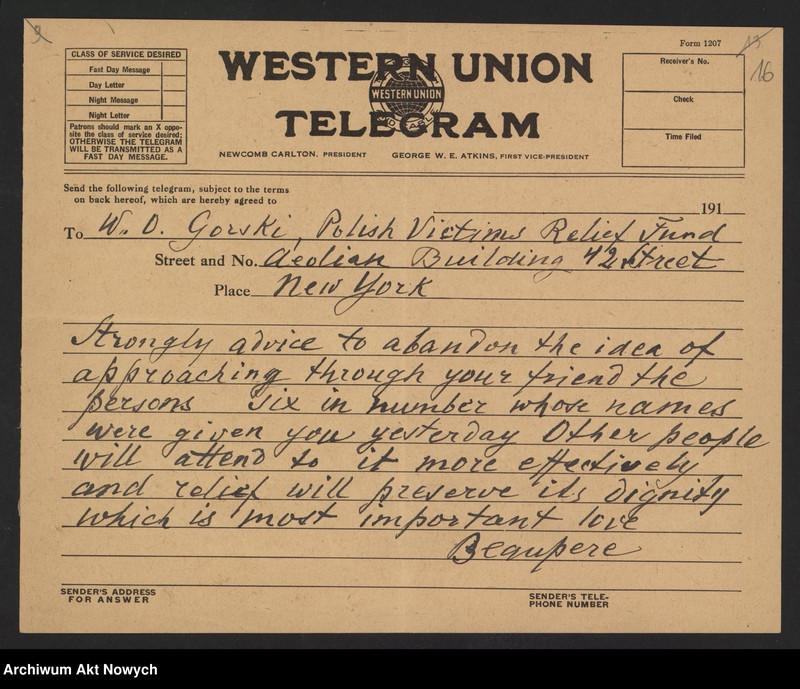 2
Form 1207
13
16
CLASS OF SERVICE DESIRED
Fast Day Message
Day Letter
Night Message
Night Letter
Patrons should mark an X oppo-
site the class of service desired;
OTHERWISE THE TELEGRAM
WILL BE TRANSMITTED AS A
FAST DAY MESSAGE.
WESTERN UNION
WESTERN UNION
TELEGRAM
NEWCOMB CARLTON, PRESIDENT GEORGE W. E. ATKINS, FIRST VICE-PRESIDENT
Receiver's No.
Check
Time Filed
Send the following telegram, subject to the terms
on back hereof, which are hereby agreed to
191
To W. O. Gorski, Polish Victims Relief Fund
Street and No. Aeolian Building 42 street
Place New York
Strongly advice to abandon the idea of
approaching through your friend the
persons six in number whose names
were given you yesterday Other people
will attend to it more effectively
and relief will preserve its dignity
which is most important love
Beaupere
SENDER'S ADDRESS
FOR ANSWER
SENDER'S TELE-
PHONE NUMBER
Archiwum Akt Nowych